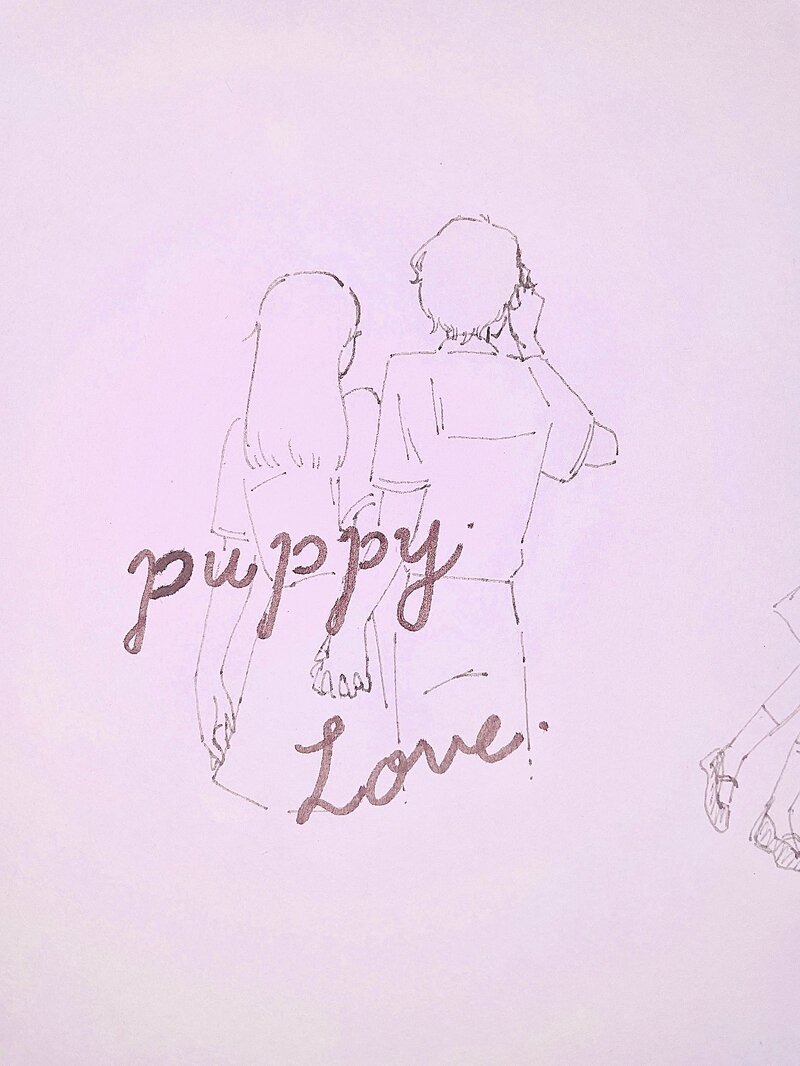 puppy.
Love.